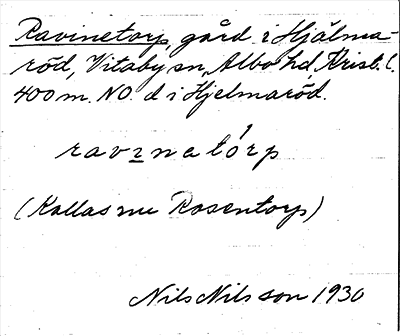 Ravinetorp gård i Hjälma-
röd, Vitaby sn, Albo hd, Krist. l.
400 m. NO. d i Hjelmaröd.
ravinatórp
(Kallas nu Rosentorp)
Nils Nilsson 1930